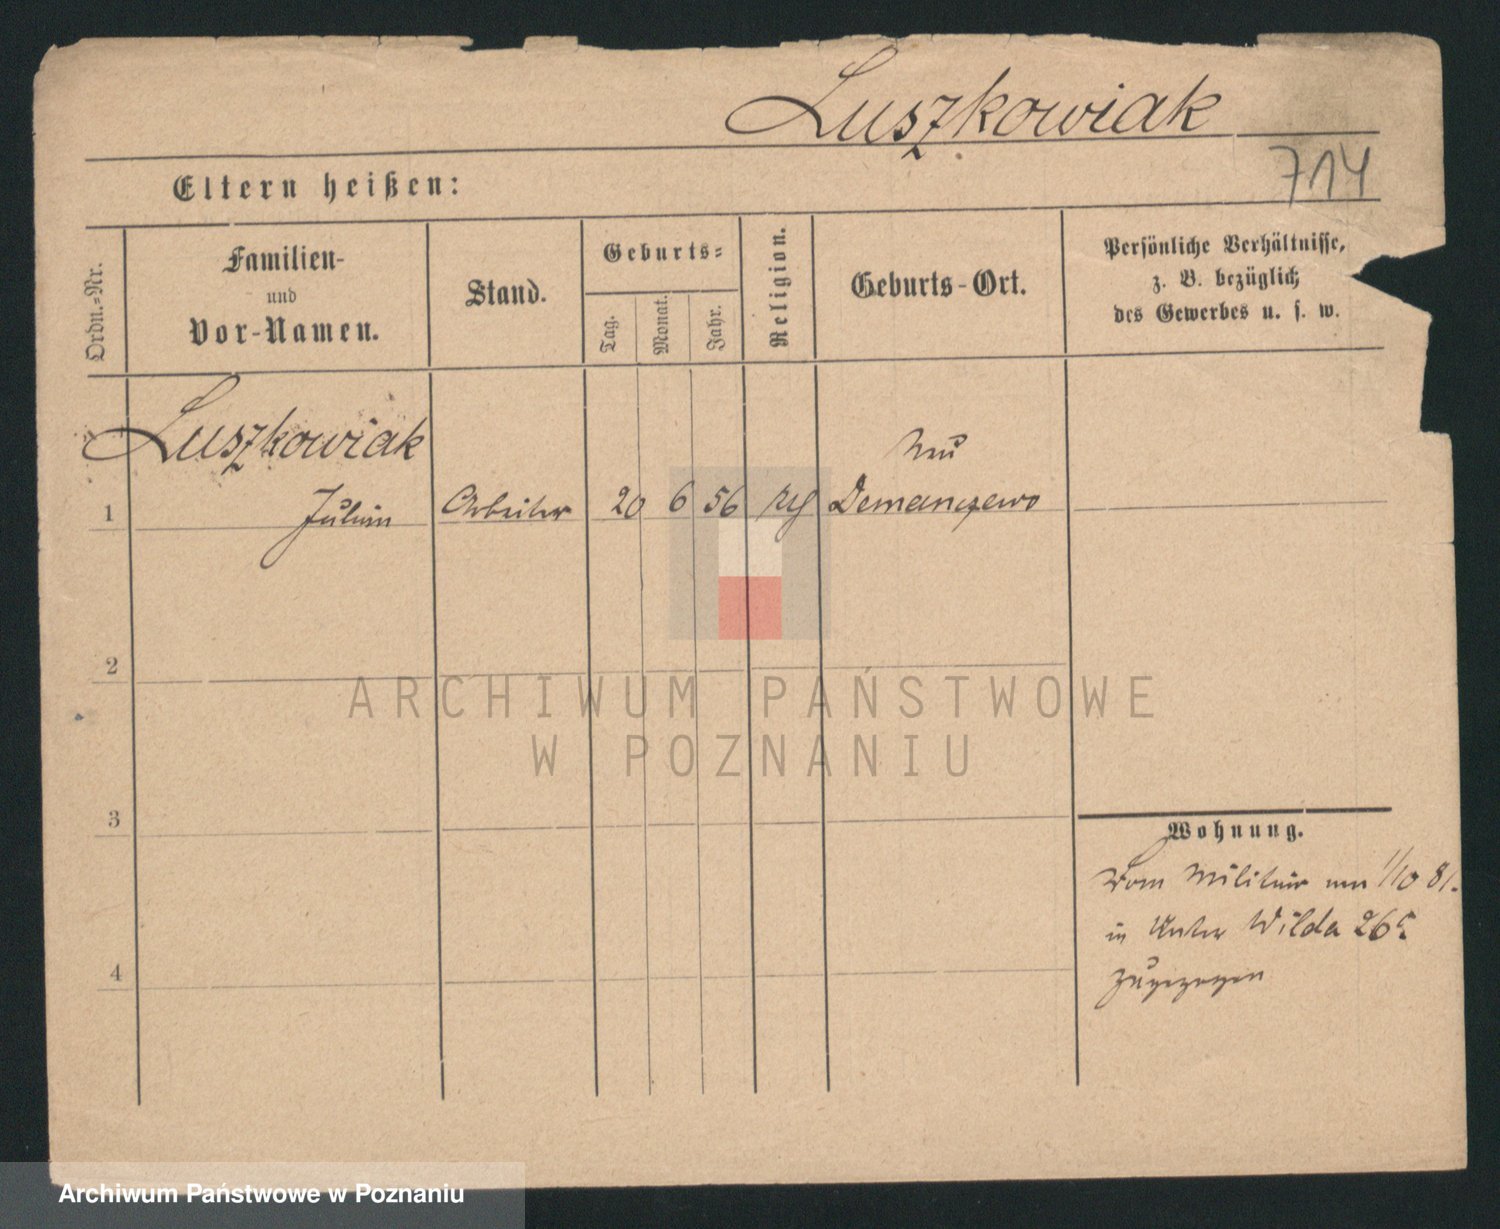 Luszkowiak
714
Eltern heißen:
Ordn.-Nr.
Familien-
und
Vor-Namen.
Stand.
Geburts-
Tag.
Monat.
Jahr.
Religion.
Geburts-Ort.
Persönliche Verhältnisse,
z. B. bezüglich
des Gewerbes u. s. w.
Luszkowiak
Neu
1 Arbeiter 20 6 56 Demanczewo
2
3
4
Wohnung.
Vom Militair am 1/10 81.
in Unter Wilda 26
zugezogen
ARCHIWUM PAŃSTWOWE
W POZNANIU
Archiwum Państwowe w Poznaniu